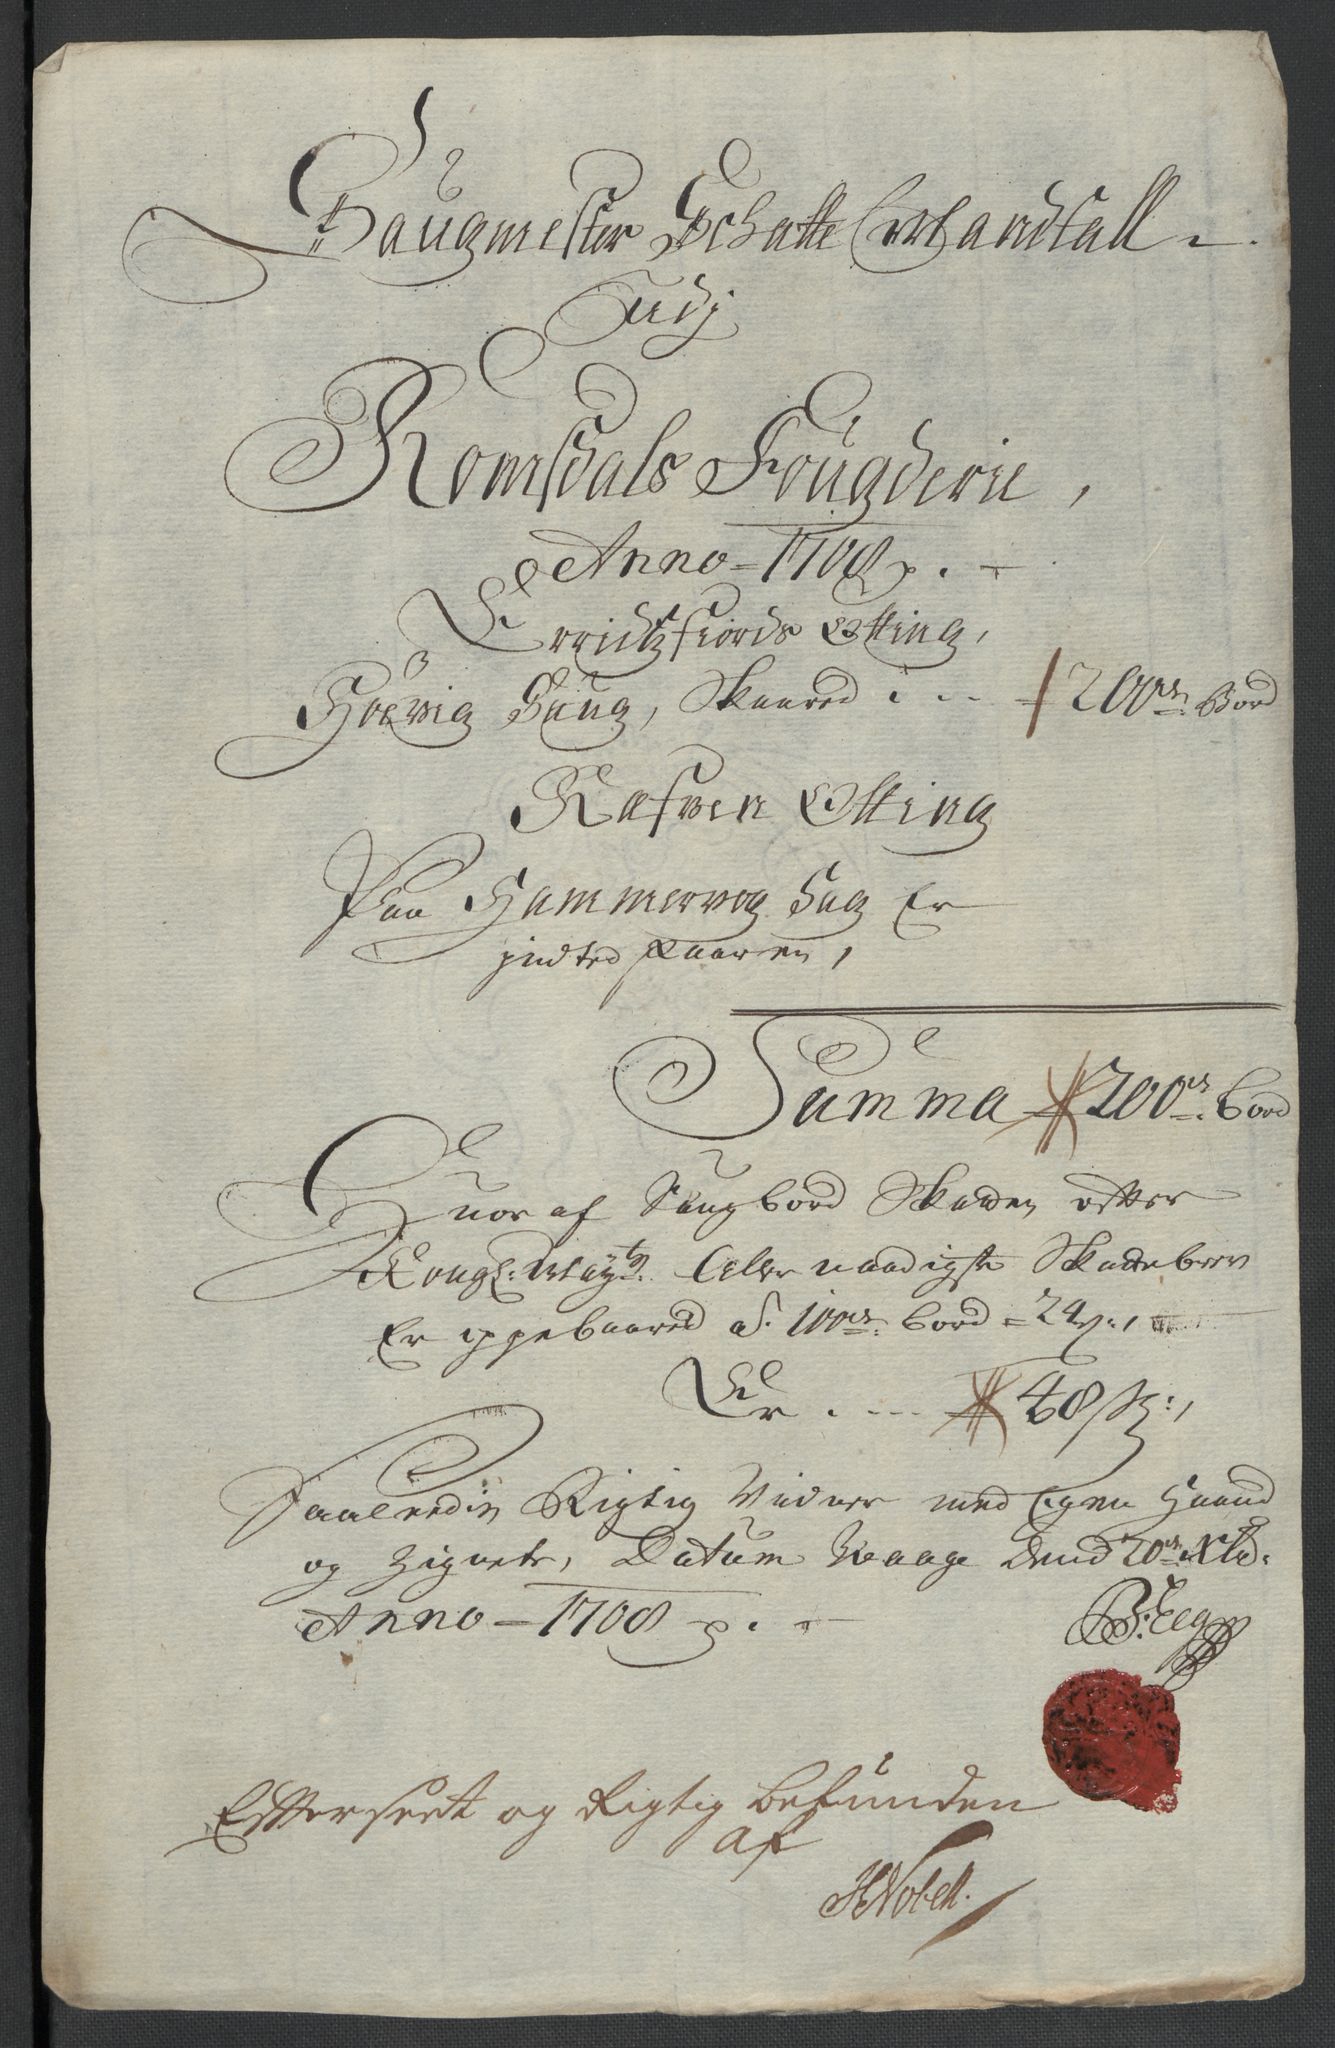 Saugmester Schatte Mandtall
Udj
Romsdals Fougderie,
Anno 1708
Erridtzfiords Otting,
Hoevig Saug, Skaared 200de Bord
Ræfven Otting
Paa Hammervog Sag Er
jndted skaaren,
Summa 200de bord
Huor af Saugbord Skatten efter
Kongl: Mayts: Aller naadigste Skattebrev
Er oppebaared af 100de bord = 24
Er 48 sk:,
Saaleedis Rigtig Vidner med Egen Haand
og Zignete, Datum Waage Dend 20de
Anno 1708
Efterseet og Rigtig befunden
af
HNobell.